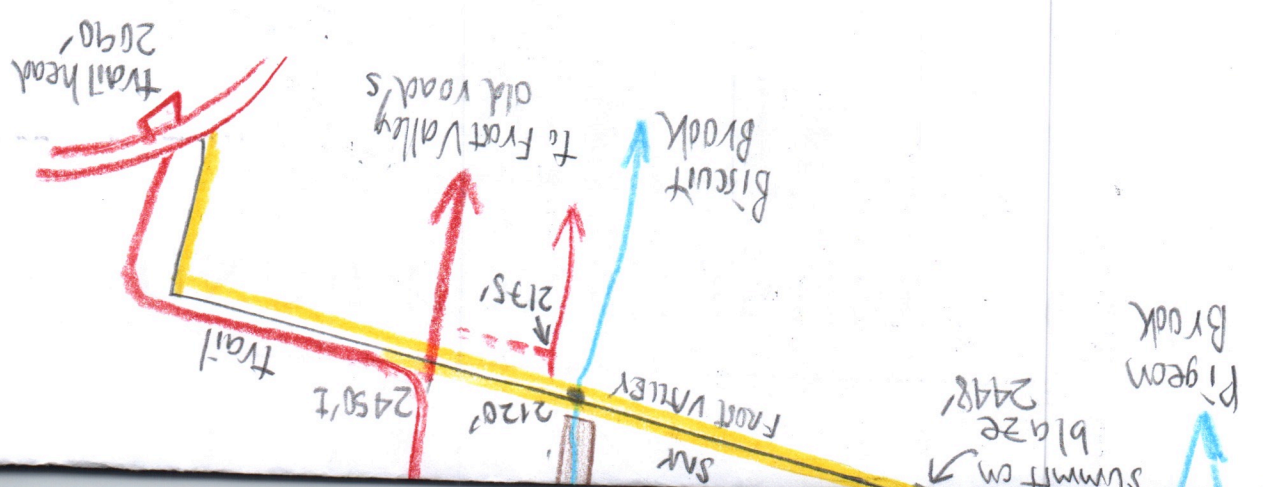 summit on
blaze
2448'
Pigeon
Brook
FROST VALLEY
2120'
2450'±
trail
2175'
Biscuit
Brook
to Frost Valley
old road's
trail head
2090'